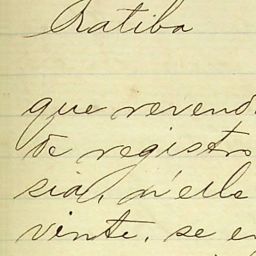 Ratiba
que revend
de registro
sia, n'elle
vinte, se e